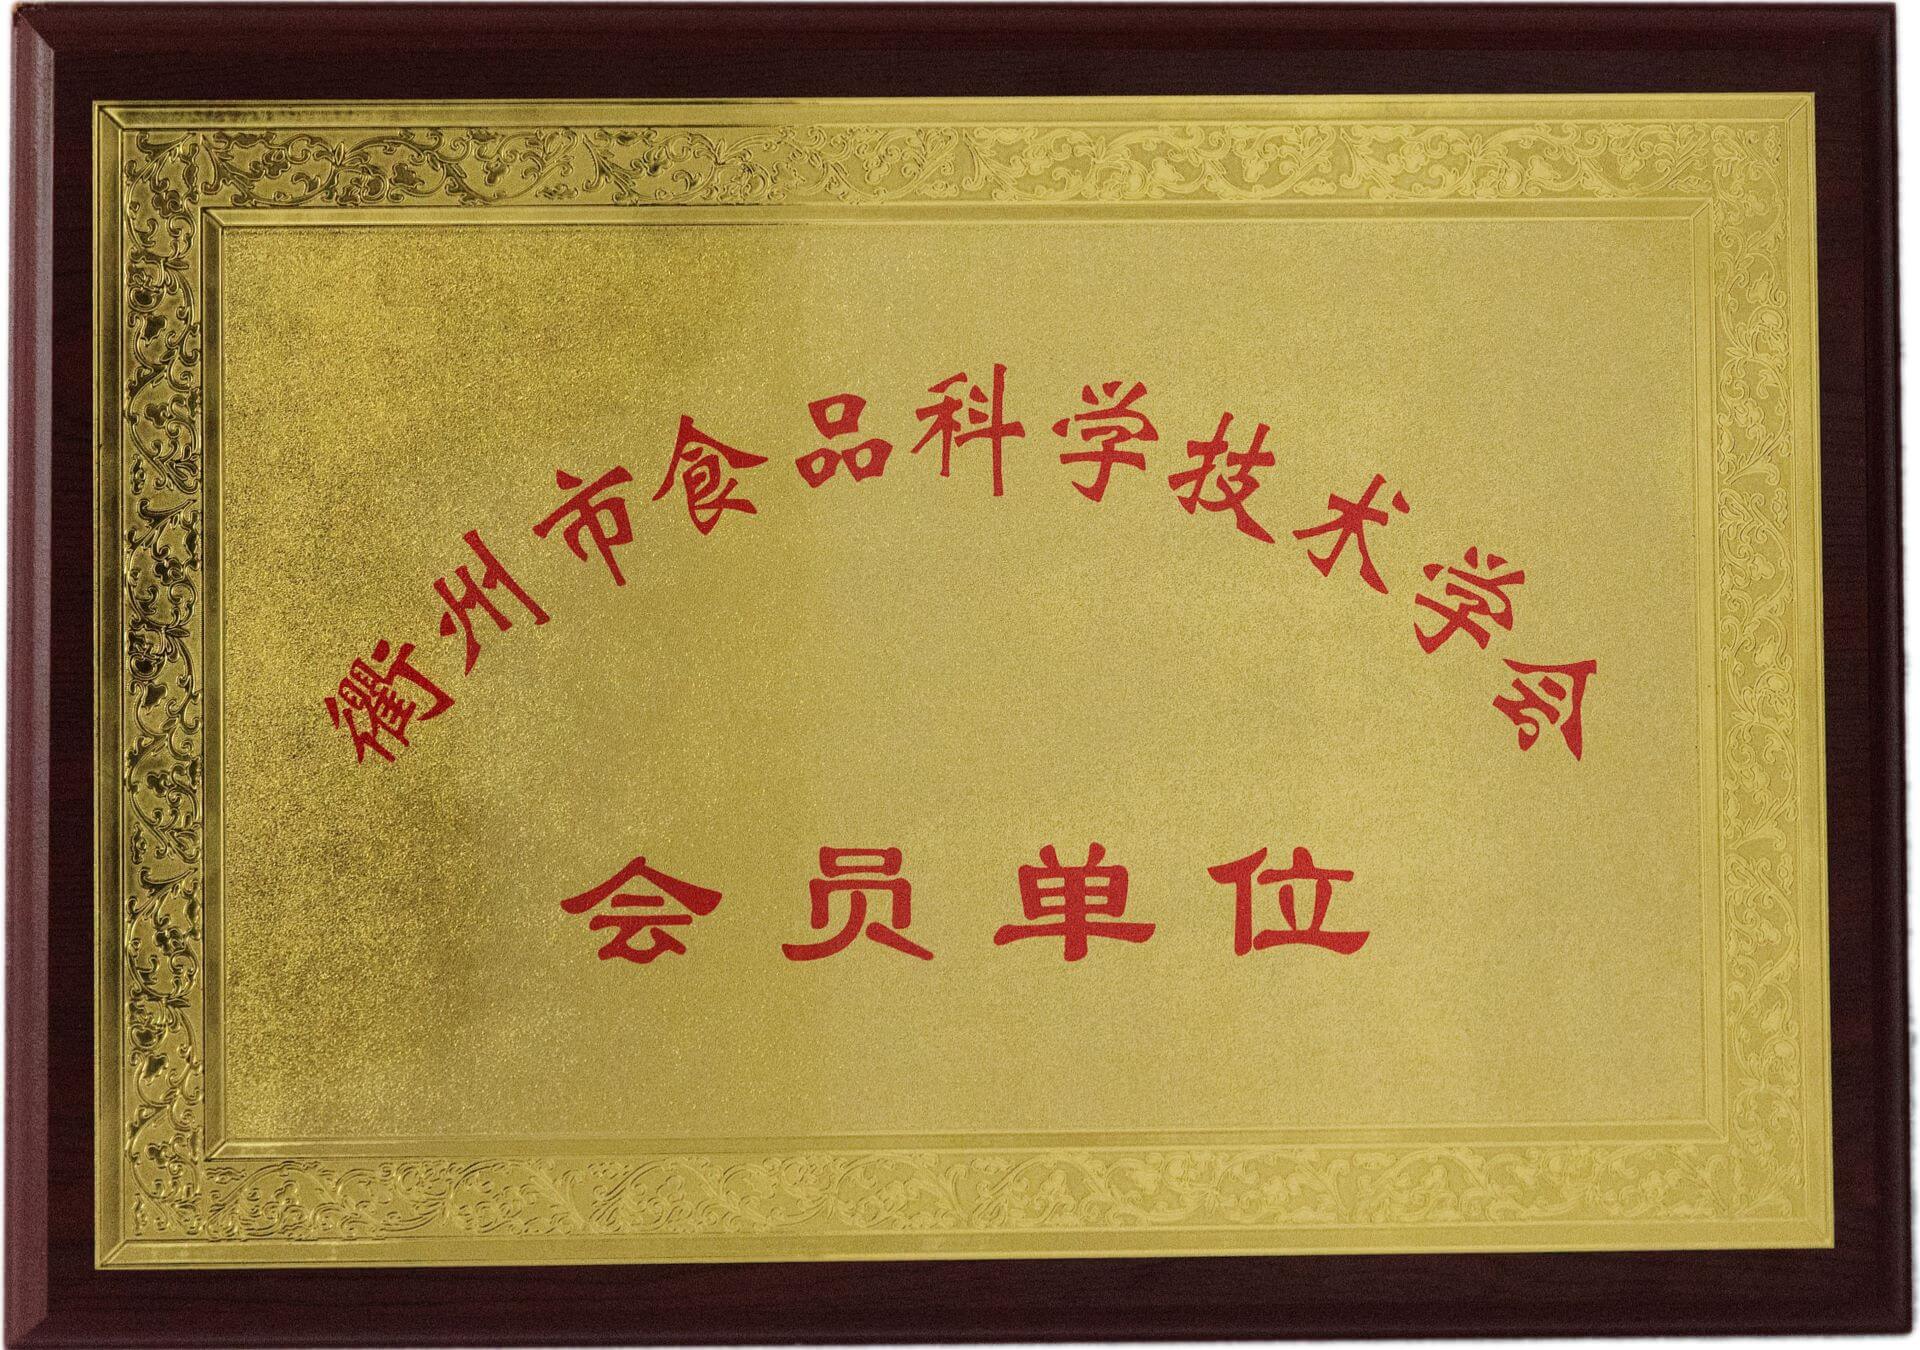 衢州市食品科学技术学会
会员单位